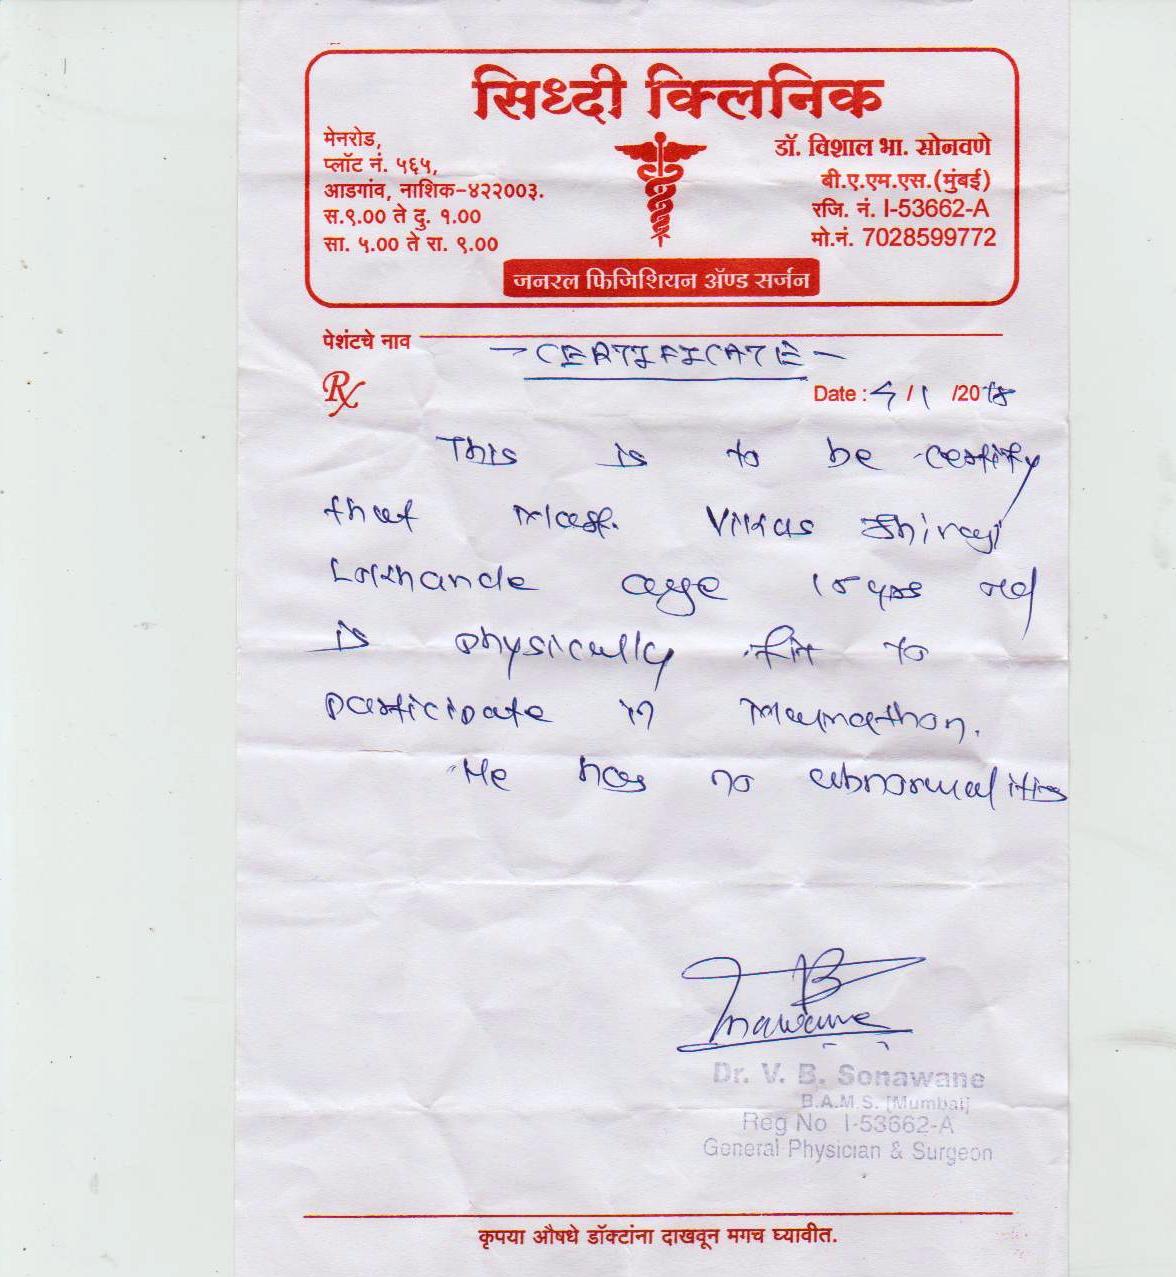 सिध्दी क्लिनिक
मेनरोड,
प्लॉट नं. ५६५,
आडगांव, नाशिक-४२२००३.
स.९.०० ते दु. १.००
सा. ५.०० ते रा. ९.००
डॉ. विशाल भा. सोनवणे
बी.ए.एम.एस.(मुंबई)
रजि. नं. I-53662-A
मो.नं. 7028599772
जनरल फिजिशियन ॲण्ड सर्जन
पेशंटचे नाव
- CERTIFICATE -
Rx
Date : /1 /2018
This is to be certify
that Mast. Vikas Shivaji
Lokhande age 15 yrs old
is physically fit to
participate in Marathon.
He has no abnormalities
Dr. V. B. Sonawane
B.A.M.S. [Mumbai]
Reg No I-53662-A
General Physician & Surgeon
कृपया औषधे डॉक्टांना दाखवून मगच घ्यावीत.